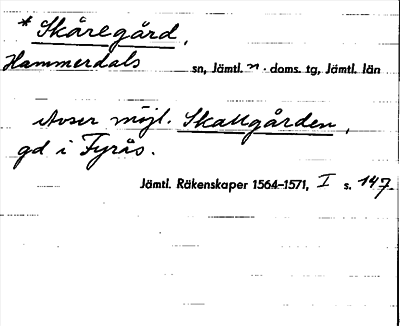 * Skåregård,
Hammerdals sn, Jämtl. n. doms. tg, Jämtl. län
Avser möjl. Skallgården,
gd i Fyrås.
Jämtl. Räkenskaper 1564-1571, I s. 147.